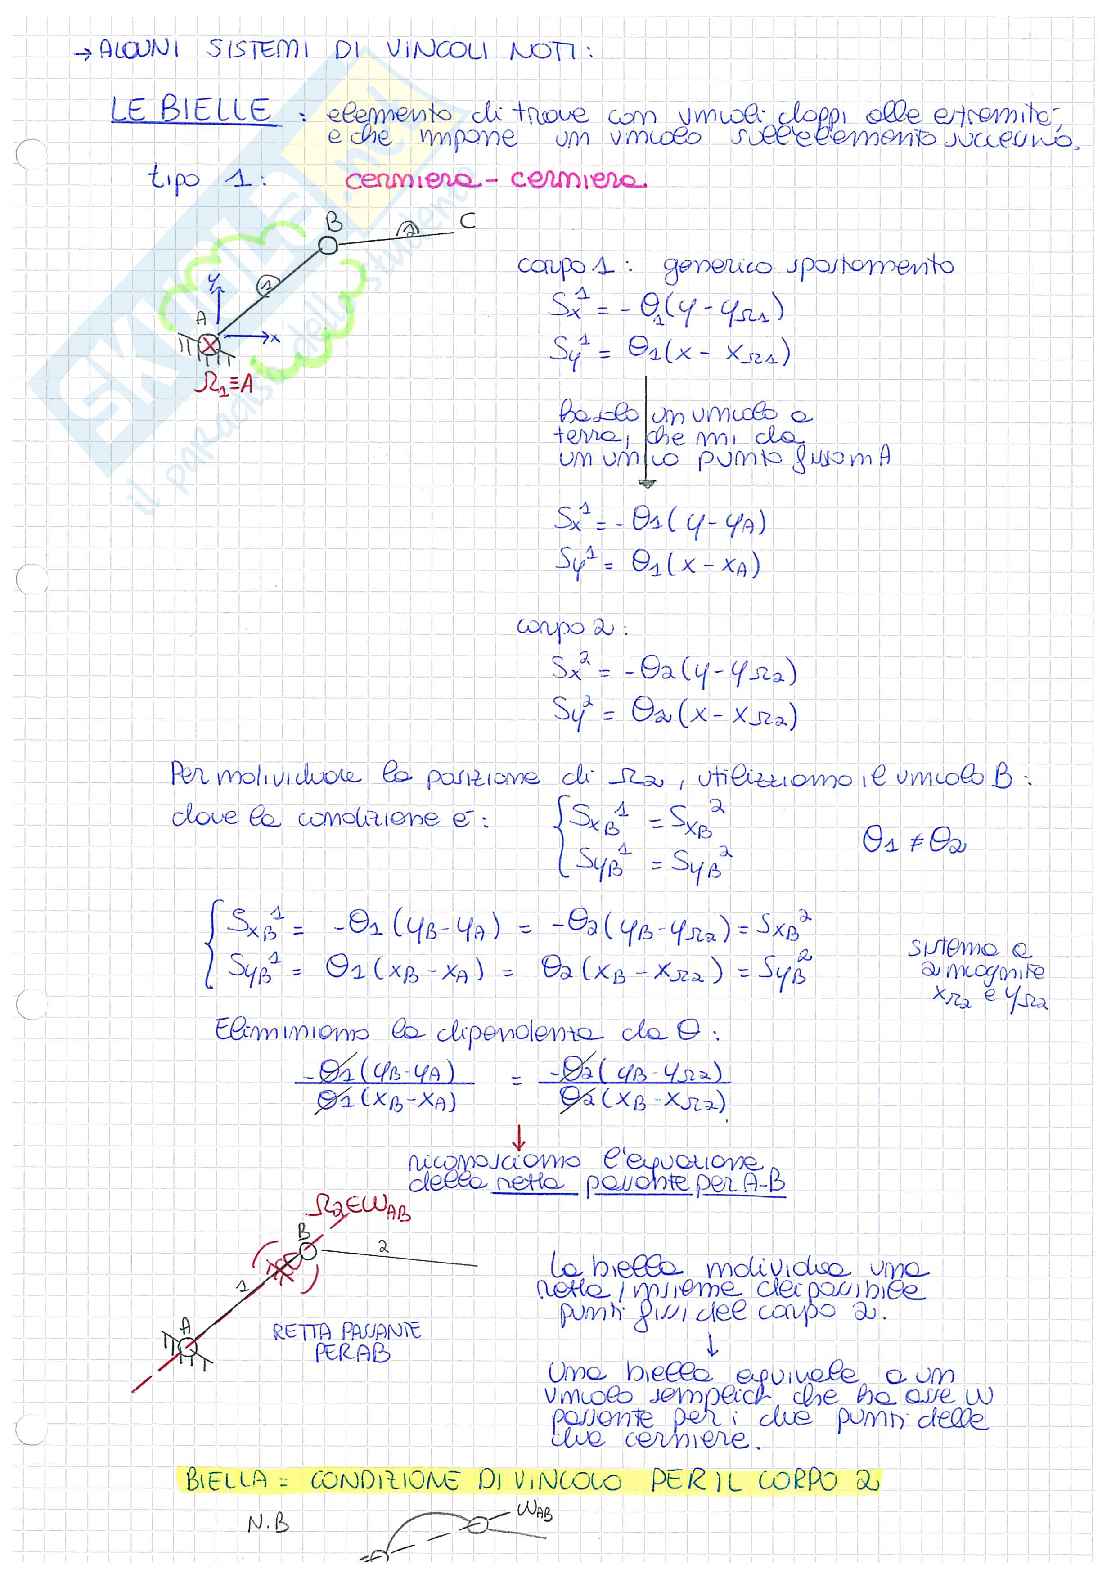 → ALCUNI SISTEMI DI VINCOLI NOTI:
LE BIELLE : elemento di trave con vincoli doppi alle estremità,
e che impone un vincolo sull'elemento successivo.
tipo 1: cerniera - cerniera.
B
2
C
1
y
A
x
Ω₁≡A
corpo 1: generico spostamento
Sx¹ = -θ₁(y - yΩ₁)
Sy¹ = θ₁(x - xΩ₁)
ho solo un vincolo a
terra, che mi da
un unico punto fisso in A
Sx¹ = -θ₁(y - yA)
Sy¹ = θ₁(x - xA)
corpo 2:
Sx² = -θ₂(y - yΩ₂)
Sy² = θ₂(x - xΩ₂)
Per individuare la posizione di Ω₂, utilizziamo il vincolo B:
dove la condizione è: { SxB¹ = SxB²
SyB¹ = SyB²
θ₁ ≠ θ₂
{ SxB¹ = -θ₁(yB - yA) = -θ₂(yB - yΩ₂) = SxB²
SyB¹ = θ₁(xB - xA) = θ₂(xB - xΩ₂) = SyB²
sistema a
2 incognite
xΩ₂ e yΩ₂
Eliminiamo la dipendenza da θ:
-θ₁(yB - yA) = -θ₂(yB - yΩ₂)
θ₁(xB - xA) θ₂(xB - xΩ₂)
riconosciamo l'equazione
della retta passante per A-B
Ω₂∈WAB
B
2
1
A
RETTA PASSANTE
PER AB
la biella individua una
retta, insieme dei possibile
punti fissi del corpo 2.
↓
Una biella equivale a un
vincolo semplice che ha asse w
passante per i due punti delle
due cerniere.
BIELLA = CONDIZIONE DI VINCOLO PER IL CORPO 2
N.B
WAB
SKUOLA.net
il paradiso dello studente